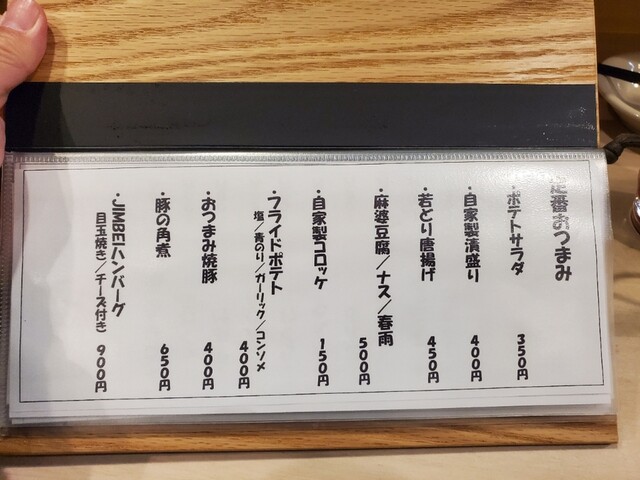 定番おつまみ
・ポテトサラダ 350円
・自家製漬盛り 400円
・若どり唐揚げ 450円
・麻婆豆腐／ナス／春雨 500円
・自家製コロッケ 150円
・フライドポテト
塩／青のり／ガーリック／コンソメ 400円
・おつまみ焼豚 400円
・豚の角煮 650円
・JIMBEIハンバーグ
目玉焼き／チーズ付き 900円